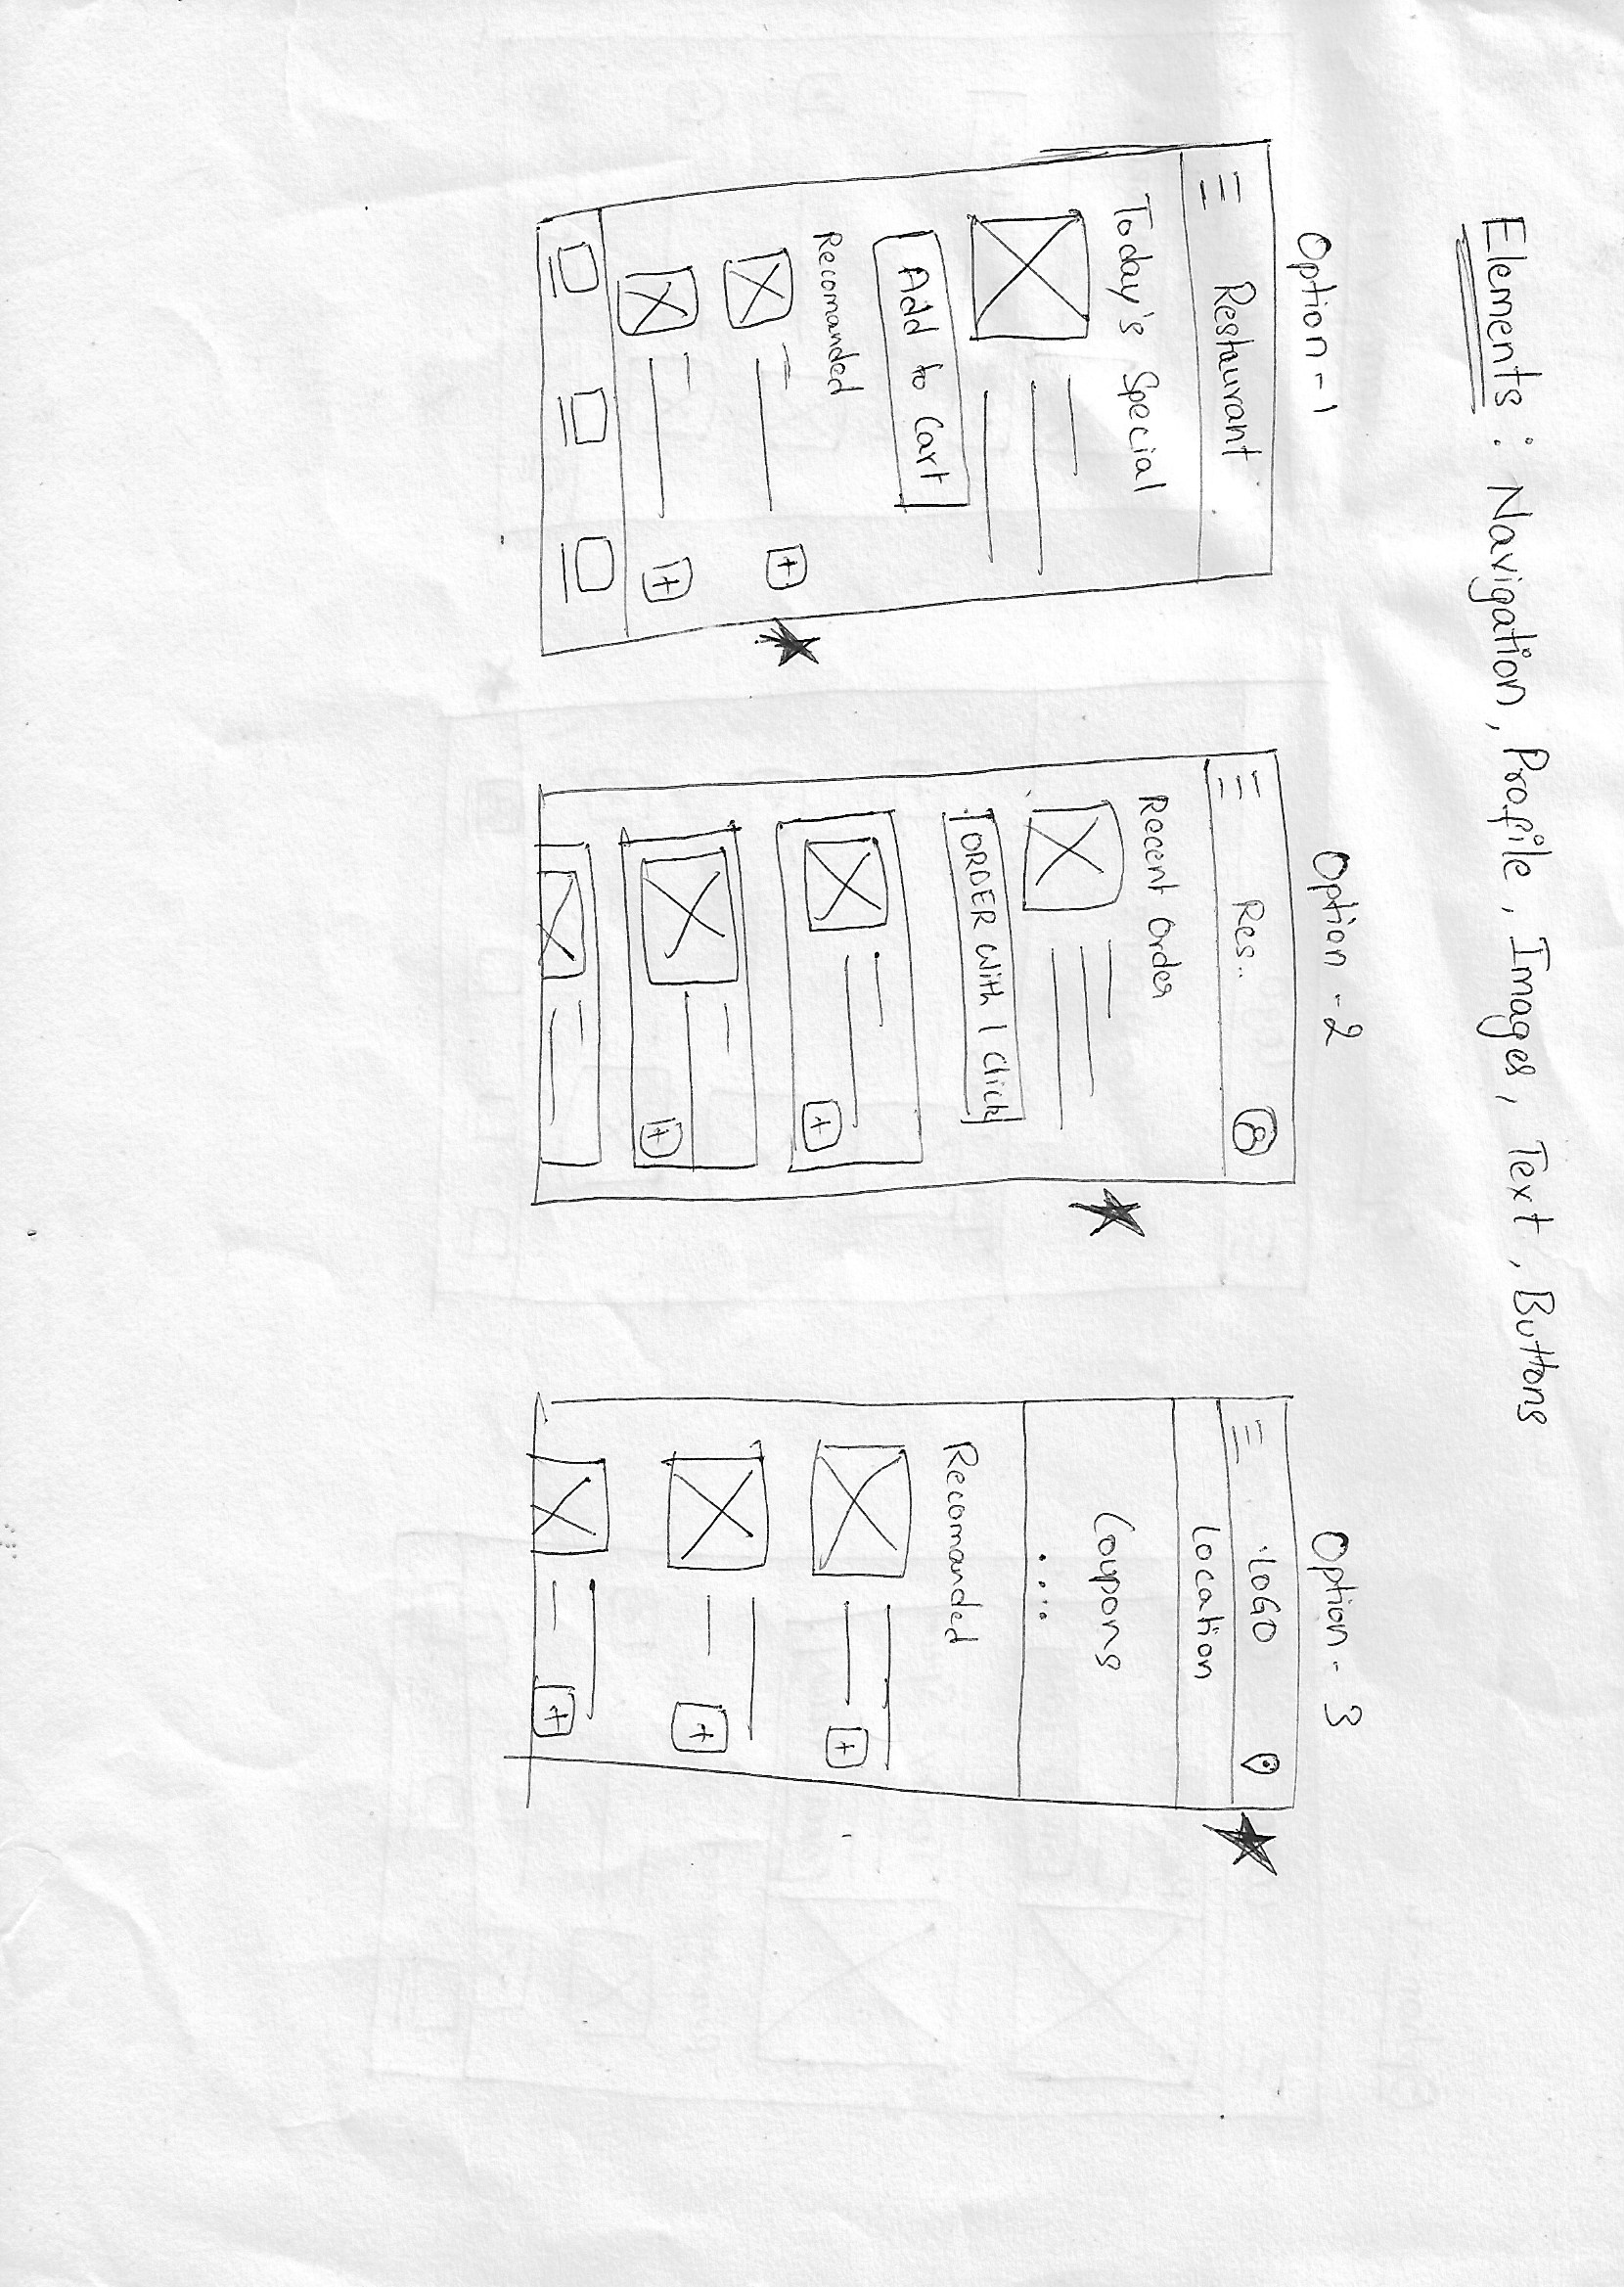 Elements : Navigation, Profile, Images, Text, Buttons
Option - 1
Restaurant
Today's Special
Add to Cart
Recomanded
Option - 2
Res..
Recent Order
ORDER With 1 Click
Option - 3
LOGO
Location
Coupons
Recomanded